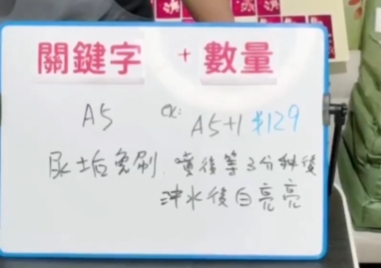 關鍵字 + 數量
A5 ex: A5+1 $129
尿土后免刷. 噴後等3分鈡後
沖水後白亮亮